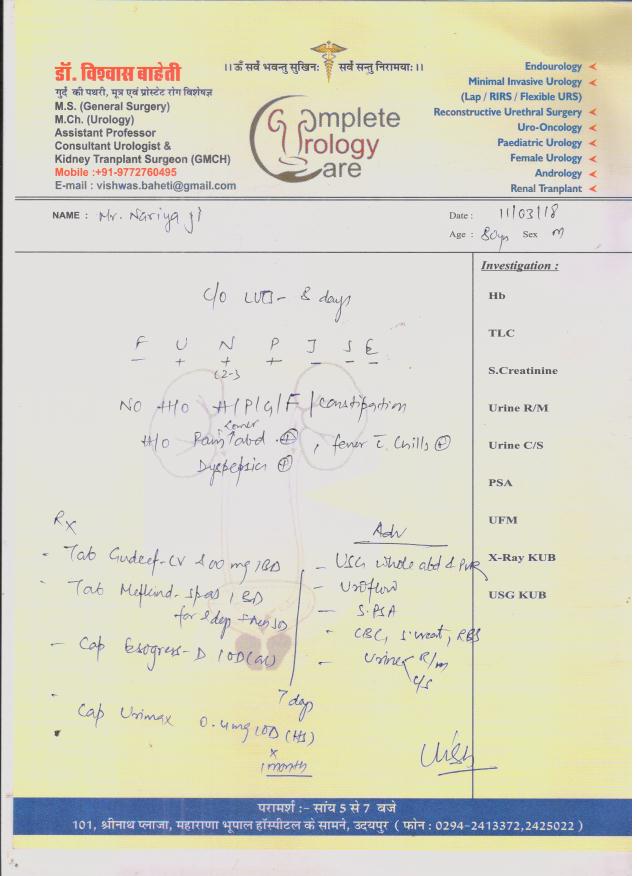 डॉ. विश्वास बाहेती
गुर्दे की पथरी, मूत्र एवं प्रोस्टेट रोग विशेषज्ञ
M.S. (General Surgery)
M.Ch. (Urology)
Assistant Professor
Consultant Urologist &
Kidney Tranplant Surgeon (GMCH)
Mobile :+91-9772760495
E-mail : vishwas.baheti@gmail.com
।।ॐ सर्वे भवन्तु सुखिनः सर्वे सन्तु निरामयाः।।
Complete
Urology
Care
Endourology
Minimal Invasive Urology
(Lap / RIRS / Flexible URS)
Reconstructive Urethral Surgery
Uro-Oncology
Paediatric Urology
Female Urology
Andrology
Renal Tranplant
NAME : Mr. Nariya ji
Date : 11/03/18
Age : 80yrs Sex M
C/O LUTS - 8 days
F U N P I S E
- + + + - - -
(2-3)
NO H/O H/P/G/F/constipation
H/O Pain lower abd. + , fever c chills +
Dyspepsia +
Rx
- Tab Gudcef-CV 200 mg 1BD
- Tab Meftind-spas 1BD
for 2 day
- Cap Esogress-D 1OD (ac)
7 days
- Cap Urimax 0.4mg 1OD (HS)
x
1 month
Adv
- USG whole abd & PVR
- Uroflow
- S.PSA
- CBC, S.creat, RBS
- Urine R/m
C/S
Investigation :
Hb
TLC
S.Creatinine
Urine R/M
Urine C/S
PSA
UFM
X-Ray KUB
USG KUB
परामर्श :- सांय 5 से 7 बजे
101, श्रीनाथ प्लाजा, महाराणा भूपाल हॉस्पीटल के सामने, उदयपुर ( फोन : 0294-2413372,2425022 )